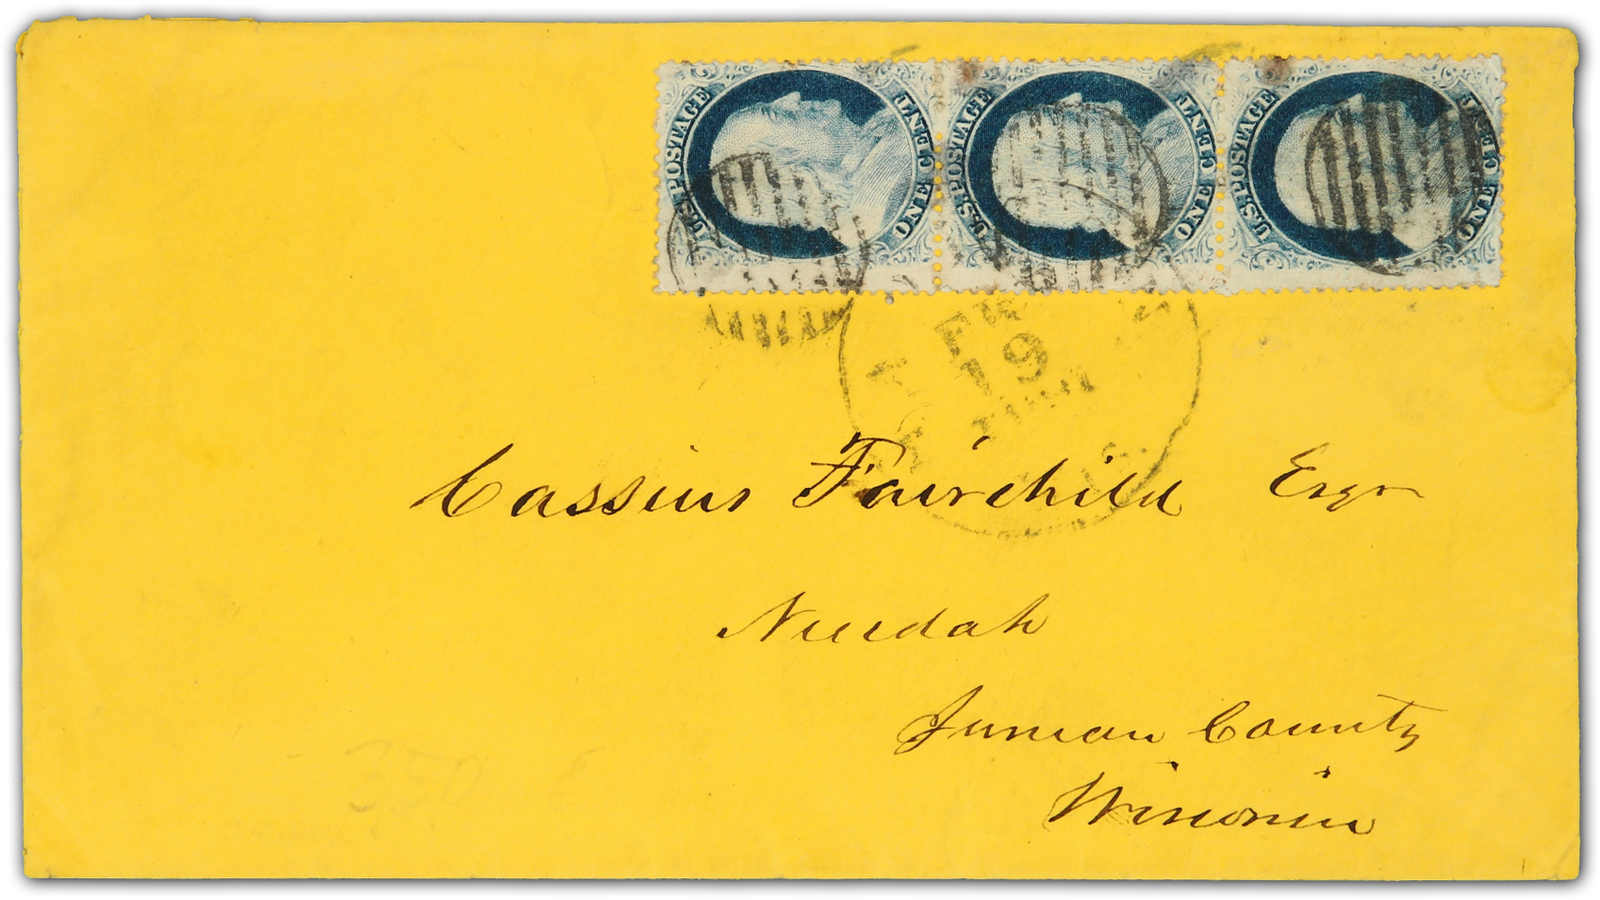 U.S. POSTAGE ONE CENT U.S. POSTAGE ONE CENT U.S. POSTAGE ONE CENT
19
Cassius Fairchild Esqr
Necedah
Juneau County
Wisconsin